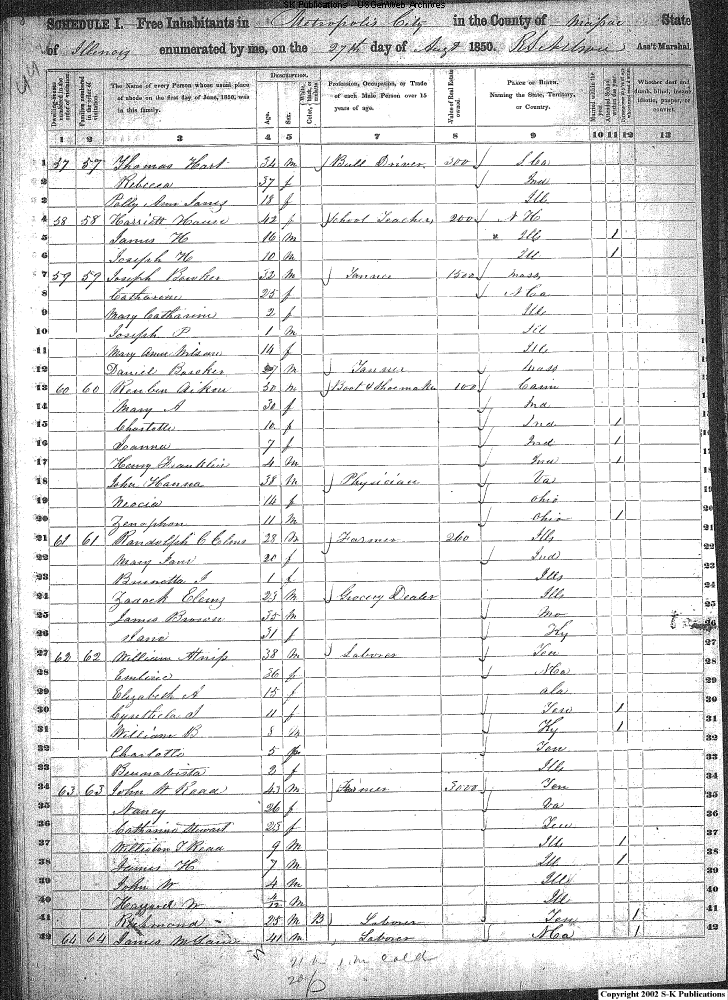 S-K Publications - USGenWeb Archives
SCHEDULE I. Free Inhabitants in Metropolis City in the County of Massac State
of Illinois enumerated by me, on the 27th day of Augt 1850. Ass't Marshal.
DESCRIPTION.
Dwelling-houses numbered in the order of visitation.
Families numbered in the order of visitation.
The Name of every Person whose usual place of abode on the first day of June, 1850, was in this family.
Age.
Sex.
Color, White, black, or mulatto.
Profession, Occupation, or Trade of each Male Person over 15 years of age.
Value of Real Estate owned.
PLACE OF BIRTH. Naming the State, Territory, or Country.
Married within the year.
Attended School within the year.
Whether deaf and dumb, blind, insane, idiotic, pauper, or convict.
1 2 3 4 5 6 7 8 9 10 11 12 13
1 57 57 Thomas Hart 34 m 300 S Ca
2 Rebecca 37 f Ind
3 Polly Ann James 18 f Ill
4 58 58 Harriett House 42 f School Teacher 200 N H
5 James H 16 m Ills 1
6 Joseph H 10 m Ill 1
7 59 59 Joseph Bowker 32 m Tanner 1500 Mass
8 Catharine 25 f N Ca
9 Mary Catharine 2 f Ills
10 Joseph P 1 m Ill
11 Mary Anne Wilson 14 f Ills
12 Daniel Bowker m Tanner Mass
13 60 60 Reuben Aiken 50 m Boot & Shoemaker 100 Conn
14 Mary A 30 f Ind
15 Charlotte 10 f Ind 1
16 Joanna 7 f Ind 1
17 Henry Franklin 4 m Ind 1
18 John Hanna 38 m Physician Va
19 Neocia 14 f Ohio
20 Zenophon 11 m Ohio 1
21 61 61 Randolph C Clens 28 m Farmer 260 Ills
22 Mary Jane 20 f Ind
23 1 f Ills
24 Zadock 23 m Grocery Dealer Ills
25 James Brown 35 m Mo
26 Jane 31 f Ky
27 62 62 William 38 m Laborer Ten
28 Emline 36 f N Ca
29 Elizabeth A 15 f Ala
30 Cynthela J 11 f Ten 1
31 William B 8 m Ky 1
32 Charlotte 5 f Ten
33 Buenavista 2 f Ills
34 63 63 John W Read 43 m Farmer 3000 Ten
35 Nancy 26 f Va
36 Catharine Stewart 23 f Ten
37 Williston T Read 9 m Ills 1
38 James H 7 m Ill 1
39 John W 4 m Ills
40 Hayard W m Ill
41 Richmond 25 m B Laborer Ten 1
42 64 64 James 41 m Laborer N Ca 1
21 m 1 m Cold
20 f
Copyright 2002 S-K Publications